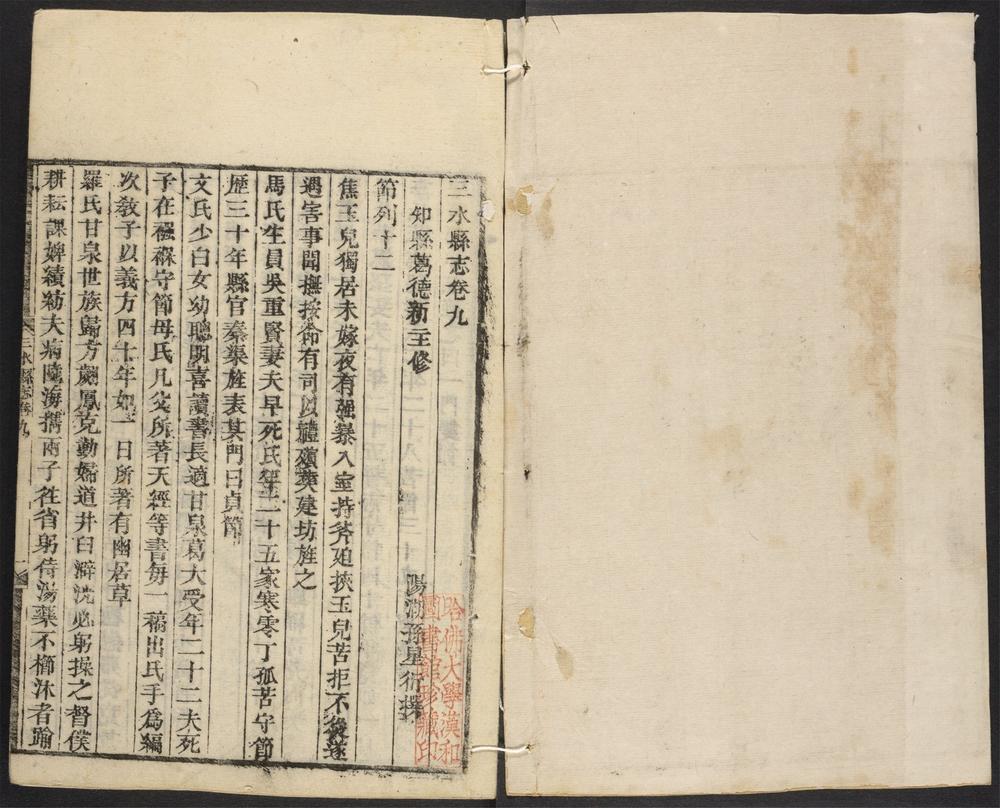 三水縣志卷九
知縣葛德新主修
陽湖孫星衍撰
節列十二
焦玉兒獨居未嫁夜有强暴入室持斧廹挾玉兒苦拒不從遂
遇害事聞撫按命有司以禮殯葬建坊旌之
馬氏生員吳重賢妻夫早死氏年二十五家寒零丁孤苦守節
歴三十年縣官秦渠旌表其門曰貞節
文氏少白女幼聰明喜讀書長適甘泉葛大受年二十二夫死
子在襁褓守節母氏凡父所著天經等書每一稿出氏手爲編
次敎子以義方四十年如一日所著有幽居草
羅氏甘泉世族歸方嵗鳳克勤婦道井臼澼洗必躬操之督僕
耕耘課婢績紡夫病隴海攜兩子徃省躬侍湯藥不櫛沐者踰
三水縣志卷九
一
哈佛大學漢和
圖書館珍藏印